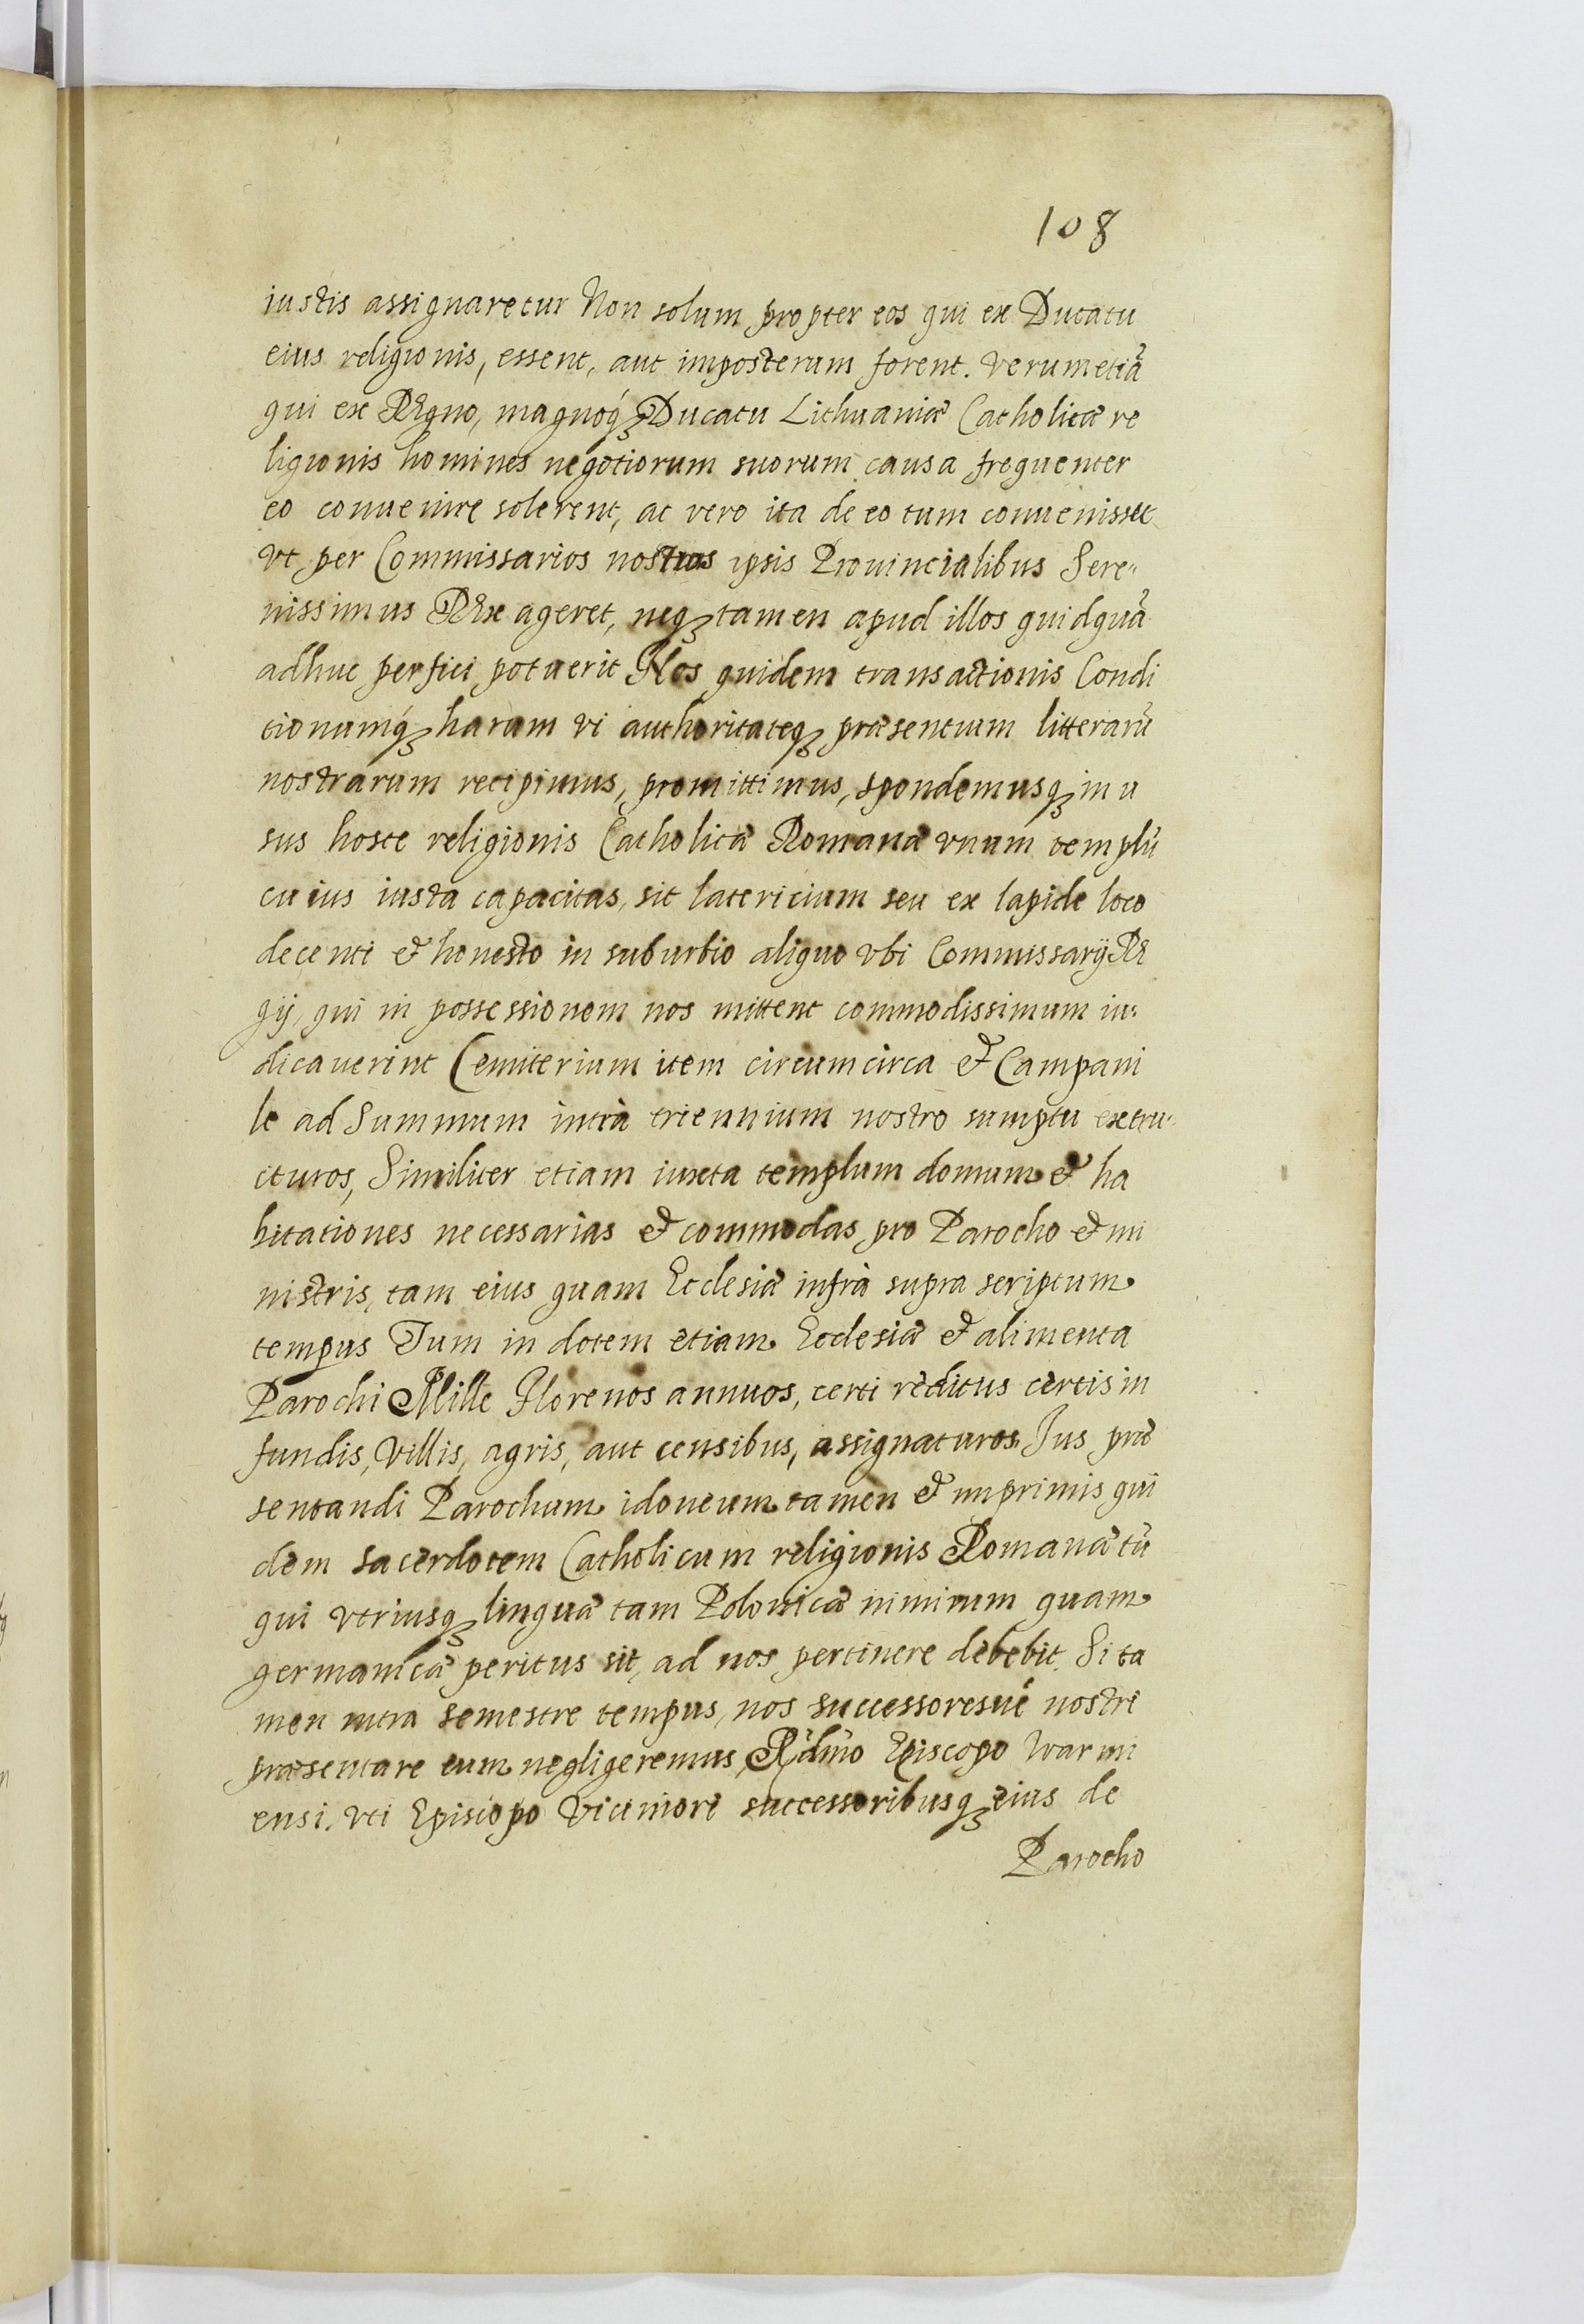 108
iustis assignaretur Non solum propter eos qui ex Ducatu
eius religionis, essent, aut imposterum forent. verumetiã
qui ex Regno, magnoq́ꝫ Ducatu Lithuaniæ Catholicæ re
ligionis homines negotiorum suorum causa frequenter
eo conuenire solerent, ac vero ita de eo tum conuenisset
vt per Commissarios nostros ipsis Prouincialibus Sere-
nissimus Rex ageret, neqꝫ tamen apud illos quidquã
adhuc perfici potuerit Nos quidem transactionis Condi
tionumq́ꝫ harum vi authoritateqꝫ præsentium litterarũ
nostrarum recipimus, promittimus, spondemusqꝫ in u
sus hosce religionis Catholicæ Romanæ vnum templũ
cuius iusta capacitas, sit latericium seu ex lapide loco
decenti et honesto in suburbio aliquo vbi Commissarij Re
gij, qui in possessionem nos mittent commodissimum iu-
dicauerint Cemiterium item circumcirca et Campani
le ad Summum intrà triennium nostro sumptu extru-
cturos, Similiter etiam iuxta templum domum et ha
bitationes necessarias et commodas pro Parocho et mi
nistris, tam eius quam Ecclesiæ infrà supra scriptum
tempus Tum in dotem etiam Ecclesiæ et alimenta
Parochi Mille Florenos annuos, certi reditus certis in
fundis, Villis, agris, aut censibus, assignaturos Ius præ
sentandi Parochum idoneum tamen et imprimis qui
dem sacerdotem Catholicum religionis Romanæ tũ
qui vtriusqꝫ linguæ tam Polonicæ nimirum quam
germanicæ peritus sit, ad nos pertinere debebit. Si ta
men intra semestre tempus, nos successoresué nostri
præsentare eum negligeremus, Rd̃mo Episcopo Warmi
ensi. vti Episcopo Viciniori successoribusqꝫ eius de
Parocho